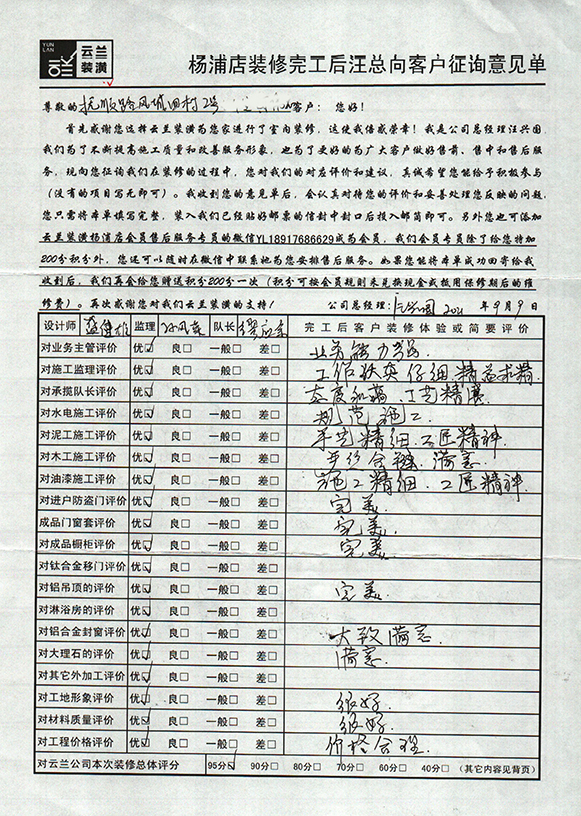 YUN LAN 云兰装潢
杨浦店装修完工后汪总向客户征询意见单
尊敬的 抚顺路凤城四村2号 客户： 您好！
首先感谢您选择云兰装潢为您家进行了室内装修，这使我倍感荣幸！我是公司总经理汪兴国，
我们为了不断提高施工质量和改善服务形象，也为了更好的为广大客户做好售前、售中和售后服
务，现向您征询我们在装修的过程中，您对我们的对应评价和建议，真诚希望您能给予积极参与
（没有的项目写无即可）。我收到您的意见单后，会认真对待您的评价和妥善处理您反映的问题，
您只需将本单填写完整，装入我们已经贴好邮票的信封中封口后投入邮筒即可。另外您也可添加
云兰装潢杨浦店会员售后服务专员的微信YL18917686629成为会员，我们会员专员除了给您特加
200分积分外，您还可以随时在微信中联系她为您安排售后服务。如果您能将本单成功回寄给我
收到后，我们再会给您赠送积分200分一次（积分可按会员规则来兑换现金或抵用保修期后的维
修费）。再次感谢您对我们云兰装潢的支持！ 公司总经理：汪兴国 2021 年9月9日
设计师 监理 队长 完工后客户装修体验或简要评价
对业务主管评价 优☑ 良□ 一般□ 差□ 业务能力强.
对施工监理评价 优☑ 良□ 一般□ 差□ 工作扶实 仔细 精益求精.
对承揽队长评价 优☑ 良□ 一般□ 差□ 态度和蔼,工艺精湛
对水电施工评价 优☑ 良□ 一般□ 差□ 规范施工
对泥工施工评价 优☑ 良□ 一般□ 差□ 手艺精细.工匠精神.
对木工施工评价 优☑ 良□ 一般□ 差□ 合缝.满意
对油漆施工评价 优☑ 良□ 一般□ 差□ 施工精细.工匠精神.
对进户防盗门评价 优☑ 良□ 一般□ 差□ 完美.
成品门窗套评价 优☑ 良□ 一般□ 差□ 完美.
对成品橱柜评价 优☑ 良□ 一般□ 差□ 完美
对钛合金移门评价 优☑ 良□ 一般□ 差□
对铝吊顶的评价 优☑ 良□ 一般□ 差□ 完美.
对淋浴房的评价 优☑ 良□ 一般□ 差□
对铝合金封窗评价 优☑ 良□ 一般□ 差□ 大致满意.
对大理石的评价 优☑ 良□ 一般□ 差□ 满意.
对其它外加工评价 优☑ 良□ 一般□ 差□
对工地形象评价 优☑ 良□ 一般□ 差□ 很好.
对材料质量评价 优☑ 良□ 一般□ 差□ 很好.
对工程价格评价 优☑ 良□ 一般□ 差□ 价格合理.
对云兰公司本次装修总体评分 95分☑ 90分□ 80分□ 70分□ 60分□ 40分□ （其它内容见背页）